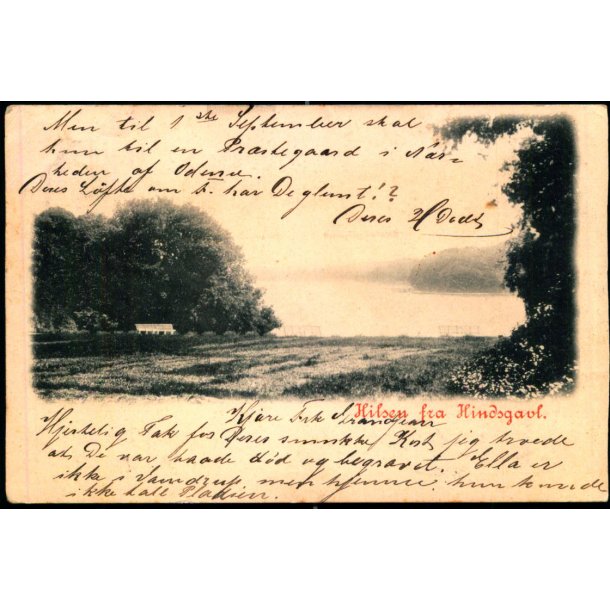 Men til 1ste September skal
hun til en Præstegaard i Nær-
heden af Odense.
Deres Løfte om b. har De glemt!?
Deres
Hilsen fra Hindsgavl.
Kjære Frk
Hjertelig Tak for Deres smukke Kort, jeg troede
at De var baade død og begravet. Ella er
ikke i Vamdrup men hjemme, hun kunde
ikke lide Pladsen.